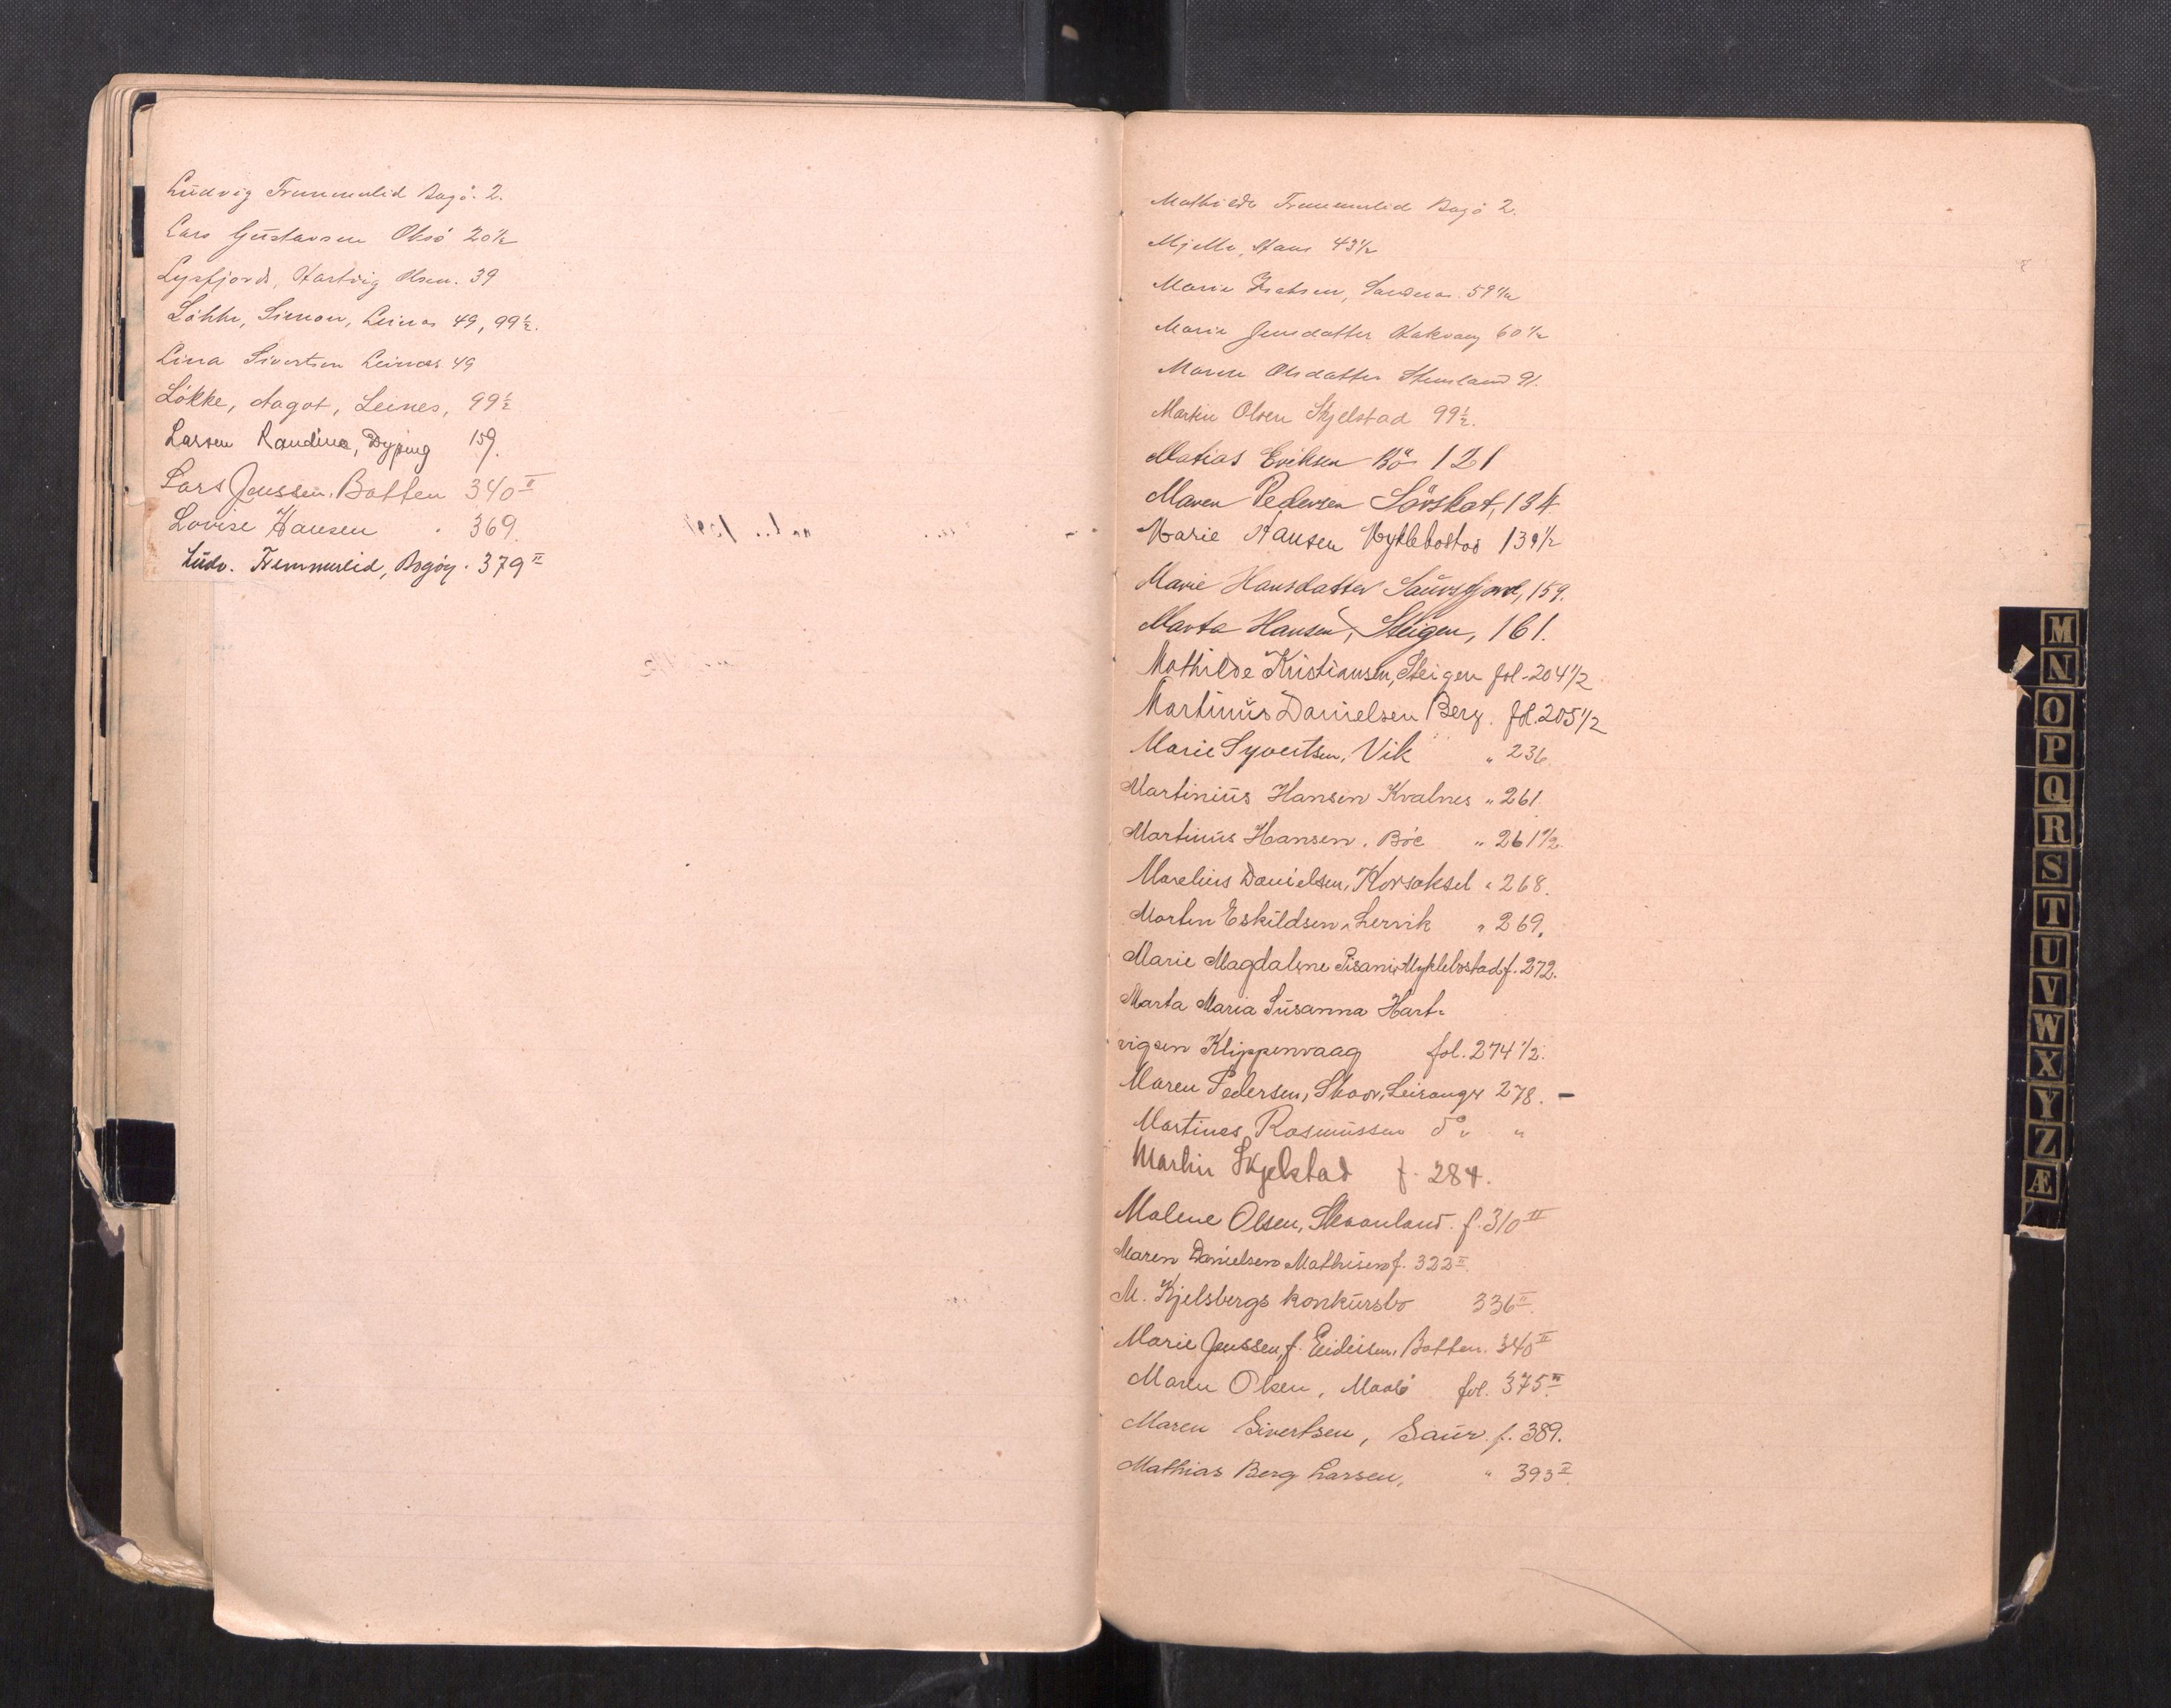 Ludvig Tremmerlid Bogö 2.
Lars Gustavsen Oksö 20½
Lysfjord, Hartvig Olsen. 39
Løkke, Simon, Leines 49, 99½.
Lina Sivertsen Leines 49
Løkke, Aagot, Leines, 99½
Larsen Randine, Dyping 159.
Lars Jenssen. Botten 340 II
Lovise Hansen 369.
Ludv. Tremmerlid, Bogöy. 379 II
Mathilde Tremmerlid Bogö 2.
Mjelle, Hans 43½
Marie Isaksen, Sandnes. 59½
Marie Jensdatter Kakvaag 60½
Maren Olsdatter Stensland 91.
Martin Olsen Skjelstad 99½.
Matias Eriksen Bö 121
Maren Pedersen Sörskot, 134
Marie Hansen Myklebostad 139½
Marie Hansdatter Saursfjord, 159.
Marta Hansen, Steigen, 161.
Mathilde Kristiansen, Steigen fol. 204½
Martinus Danielsen Berg. fol. 205½
Marie Syvertsen, Vik " 236.
Martinius Hansen Kvalnes " 261.
Martinus Hansen. Böe " 261½.
Marelius Danielsen, Korsoksel " 268.
Morten Eskildsen, Lervik " 269.
Marie Magdalene Pisani, Myklebostad f. 272.
Marta Maria Susanna Hart-
vigsen Klippenvaag fol. 274½.
Maren Pedersen, Skaar, Leiranger 278. –
Martines Rasmussen do "
Martin Skjelstad f. 284.
Malene Olsen, Skaanland. f. 310 II
Maren Danielsen Mathisen f. 322 II.
M. Kjelsbergs konkursbo 336 II.
Marie Jenssen, f. Eidissen, Botten. 340 II
Maren Olsen, Maalö fol. 375 II
Maren Sivertsen, Saur. f. 389.
Mathias Berg Larsen, " 393 II.
M
N
O
P
Q
R
S
T
U
V
W
X
Y
Z
Æ